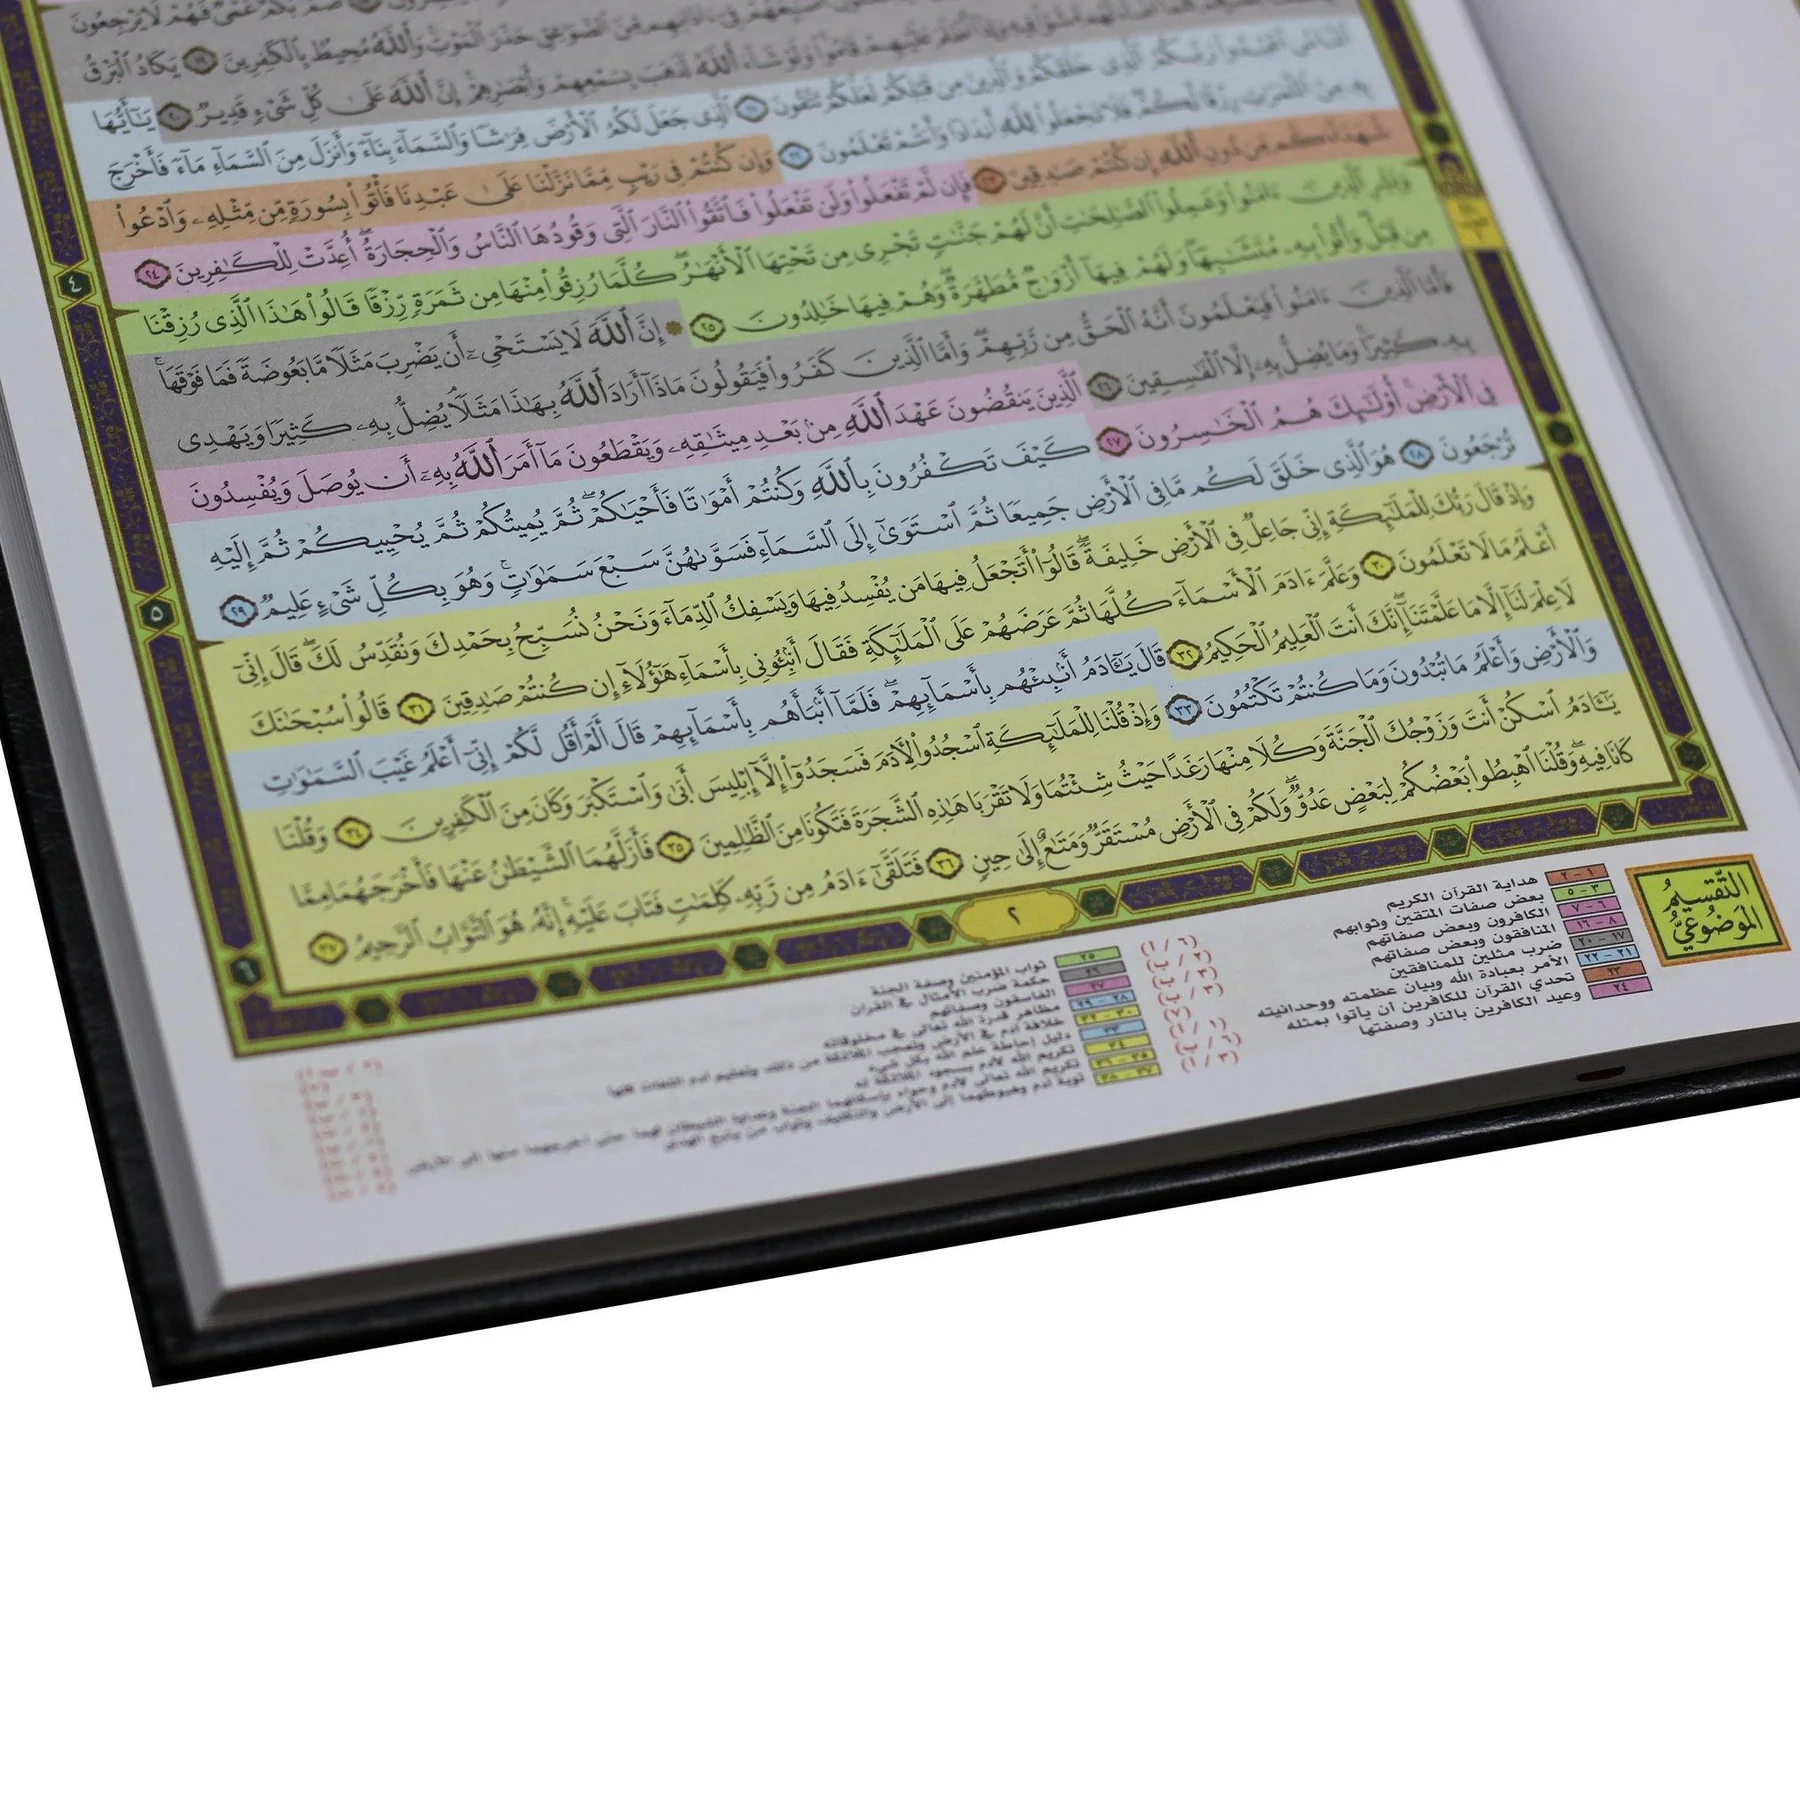 صُمٌّۢ بُكْمٌ عُمْيٌ فَهُمْ لَا يَرْجِعُونَ
فِيٓ ءَاذَانِهِم مِّنَ ٱلصَّوَٰعِقِ حَذَرَ ٱلْمَوْتِۚ وَٱللَّهُ مُحِيطُۢ بِٱلْكَٰفِرِينَ ١٩ يَكَادُ ٱلْبَرْقُ
لَهُم مَّشَوْاْ فِيهِ وَإِذَآ أَظْلَمَ عَلَيْهِمْ قَامُواْۚ وَلَوْ شَآءَ ٱللَّهُ لَذَهَبَ بِسَمْعِهِمْ وَأَبْصَٰرِهِمْۚ إِنَّ ٱللَّهَ عَلَىٰ كُلِّ شَىْءٍ قَدِيرٌ ٢٠ يَٰٓأَيُّهَا
ٱلنَّاسُ ٱعْبُدُواْ رَبَّكُمُ ٱلَّذِى خَلَقَكُمْ وَٱلَّذِينَ مِن قَبْلِكُمْ لَعَلَّكُمْ تَتَّقُونَ ٢١ ٱلَّذِى جَعَلَ لَكُمُ ٱلْأَرْضَ فِرَٰشًا وَٱلسَّمَآءَ بِنَآءً وَأَنزَلَ مِنَ ٱلسَّمَآءِ مَآءً فَأَخْرَجَ
بِهِۦ مِنَ ٱلثَّمَرَٰتِ رِزْقًا لَّكُمْۖ فَلَا تَجْعَلُواْ لِلَّهِ أَندَادًا وَأَنتُمْ تَعْلَمُونَ ٢٢ وَإِن كُنتُمْ فِى رَيْبٍ مِّمَّا نَزَّلْنَا عَلَىٰ عَبْدِنَا فَأْتُواْ بِسُورَةٍ مِّن مِّثْلِهِۦ وَٱدْعُواْ
شُهَدَآءَكُم مِّن دُونِ ٱللَّهِ إِن كُنتُمْ صَٰدِقِينَ ٢٣ فَإِن لَّمْ تَفْعَلُواْ وَلَن تَفْعَلُواْ فَٱتَّقُواْ ٱلنَّارَ ٱلَّتِى وَقُودُهَا ٱلنَّاسُ وَٱلْحِجَارَةُۖ أُعِدَّتْ لِلْكَٰفِرِينَ ٢٤
وَبَشِّرِ ٱلَّذِينَ ءَامَنُواْ وَعَمِلُواْ ٱلصَّٰلِحَٰتِ أَنَّ لَهُمْ جَنَّٰتٍ تَجْرِى مِن تَحْتِهَا ٱلْأَنْهَٰرُۖ كُلَّمَا رُزِقُواْ مِنْهَا مِن ثَمَرَةٍ رِّزْقًا قَالُواْ هَٰذَا ٱلَّذِى رُزِقْنَا
مِن قَبْلُۖ وَأُتُواْ بِهِۦ مُتَشَٰبِهًاۖ وَلَهُمْ فِيهَآ أَزْوَٰجٌ مُّطَهَّرَةٌۖ وَهُمْ فِيهَا خَٰلِدُونَ ٢٥ إِنَّ ٱللَّهَ لَا يَسْتَحْىِۦٓ أَن يَضْرِبَ مَثَلًا مَّا بَعُوضَةً فَمَا فَوْقَهَاۚ
فَأَمَّا ٱلَّذِينَ ءَامَنُواْ فَيَعْلَمُونَ أَنَّهُ ٱلْحَقُّ مِن رَّبِّهِمْۖ وَأَمَّا ٱلَّذِينَ كَفَرُواْ فَيَقُولُونَ مَاذَآ أَرَادَ ٱللَّهُ بِهَٰذَا مَثَلًاۘ يُضِلُّ بِهِۦ كَثِيرًا وَيَهْدِى
بِهِۦ كَثِيرًاۚ وَمَا يُضِلُّ بِهِۦٓ إِلَّا ٱلْفَٰسِقِينَ ٢٦ ٱلَّذِينَ يَنقُضُونَ عَهْدَ ٱللَّهِ مِنۢ بَعْدِ مِيثَٰقِهِۦ وَيَقْطَعُونَ مَآ أَمَرَ ٱللَّهُ بِهِۦٓ أَن يُوصَلَ وَيُفْسِدُونَ
فِى ٱلْأَرْضِۚ أُوْلَٰٓئِكَ هُمُ ٱلْخَٰسِرُونَ ٢٧ كَيْفَ تَكْفُرُونَ بِٱللَّهِ وَكُنتُمْ أَمْوَٰتًا فَأَحْيَٰكُمْۖ ثُمَّ يُمِيتُكُمْ ثُمَّ يُحْيِيكُمْ ثُمَّ إِلَيْهِ
تُرْجَعُونَ ٢٨ هُوَ ٱلَّذِى خَلَقَ لَكُم مَّا فِى ٱلْأَرْضِ جَمِيعًا ثُمَّ ٱسْتَوَىٰٓ إِلَى ٱلسَّمَآءِ فَسَوَّىٰهُنَّ سَبْعَ سَمَٰوَٰتٍۚ وَهُوَ بِكُلِّ شَىْءٍ عَلِيمٌ ٢٩
وَإِذْ قَالَ رَبُّكَ لِلْمَلَٰٓئِكَةِ إِنِّى جَاعِلٌ فِى ٱلْأَرْضِ خَلِيفَةًۖ قَالُوٓاْ أَتَجْعَلُ فِيهَا مَن يُفْسِدُ فِيهَا وَيَسْفِكُ ٱلدِّمَآءَ وَنَحْنُ نُسَبِّحُ بِحَمْدِكَ وَنُقَدِّسُ لَكَۖ قَالَ إِنِّىٓ
أَعْلَمُ مَا لَا تَعْلَمُونَ ٣٠ وَعَلَّمَ ءَادَمَ ٱلْأَسْمَآءَ كُلَّهَا ثُمَّ عَرَضَهُمْ عَلَى ٱلْمَلَٰٓئِكَةِ فَقَالَ أَنۢبِـُٔونِى بِأَسْمَآءِ هَٰٓؤُلَآءِ إِن كُنتُمْ صَٰدِقِينَ ٣١ قَالُواْ سُبْحَٰنَكَ
لَا عِلْمَ لَنَآ إِلَّا مَا عَلَّمْتَنَآۖ إِنَّكَ أَنتَ ٱلْعَلِيمُ ٱلْحَكِيمُ ٣٢ قَالَ يَٰٓـَٔادَمُ أَنۢبِئْهُم بِأَسْمَآئِهِمْۖ فَلَمَّآ أَنۢبَأَهُم بِأَسْمَآئِهِمْ قَالَ أَلَمْ أَقُل لَّكُمْ إِنِّىٓ أَعْلَمُ غَيْبَ ٱلسَّمَٰوَٰتِ
وَٱلْأَرْضِ وَأَعْلَمُ مَا تُبْدُونَ وَمَا كُنتُمْ تَكْتُمُونَ ٣٣ وَإِذْ قُلْنَا لِلْمَلَٰٓئِكَةِ ٱسْجُدُواْ لِـَٔادَمَ فَسَجَدُوٓاْ إِلَّآ إِبْلِيسَ أَبَىٰ وَٱسْتَكْبَرَ وَكَانَ مِنَ ٱلْكَٰفِرِينَ ٣٤ وَقُلْنَا
يَٰٓـَٔادَمُ ٱسْكُنْ أَنتَ وَزَوْجُكَ ٱلْجَنَّةَ وَكُلَا مِنْهَا رَغَدًا حَيْثُ شِئْتُمَا وَلَا تَقْرَبَا هَٰذِهِ ٱلشَّجَرَةَ فَتَكُونَا مِنَ ٱلظَّٰلِمِينَ ٣٥ فَأَزَلَّهُمَا ٱلشَّيْطَٰنُ عَنْهَا فَأَخْرَجَهُمَا مِمَّا
كَانَا فِيهِۖ وَقُلْنَا ٱهْبِطُواْ بَعْضُكُمْ لِبَعْضٍ عَدُوٌّۖ وَلَكُمْ فِى ٱلْأَرْضِ مُسْتَقَرٌّ وَمَتَٰعٌ إِلَىٰ حِينٍ ٣٦ فَتَلَقَّىٰٓ ءَادَمُ مِن رَّبِّهِۦ كَلِمَٰتٍ فَتَابَ عَلَيْهِۚ إِنَّهُۥ هُوَ ٱلتَّوَّابُ ٱلرَّحِيمُ ٣٧
٤
٥
٦
٢
التَّقسيمُ
المَوضُوعيُّ
١ - ٢ هداية القرآن الكريم
٣ - ٥ بعض صفات المتقين وثوابهم
٦ - ٧ الكافرون وبعض صفاتهم
٨ - ١٦ المنافقون وبعض صفاتهم
١٧ - ٢٠ ضرب مثلين للمنافقين
٢١ - ٢٢ الأمر بعبادة الله وبيان عظمته ووحدانيته
٢٣ تحدي القرآن للكافرين أن يأتوا بمثله
٢٤ وعيد الكافرين بالنار وصفتها
٢٥ ثواب المؤمنين وصفة الجنة
٢٦ حكمة ضرب الأمثال في القرآن
٢٧ الفاسقون وصفاتهم
٢٨ - ٢٩ مظاهر قدرة الله تعالى في مخلوقاته
٣٠ - ٣٢ خلافة آدم في الأرض وتعجب الملائكة من ذلك وتعليم آدم اللغات كلها
٣٣ دليل إحاطة علم الله بكل شيء
٣٤ تكريم الله لآدم بسجود الملائكة له